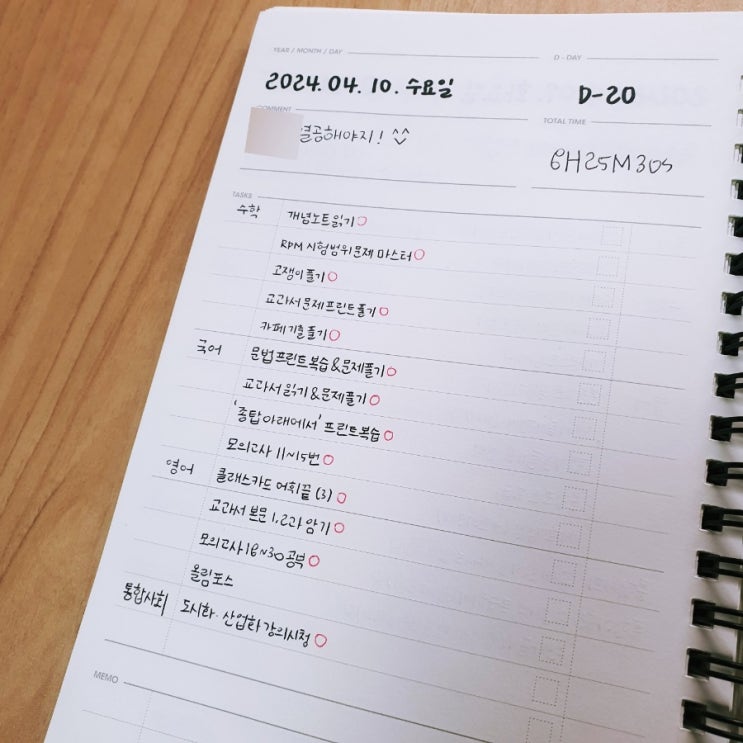 YEAR / MONTH / DAY
D - DAY
2024. 04. 10. 수요일
D-20
COMMENT
TOTAL TIME
열공해야지! ^^
6H25M30S
TASKS
수학 개념노트읽기
RPM 시험범위문제 마스터
고쟁이풀기
교과서문제프린트풀기
카페기출풀기
국어 문법프린트복습&문제풀기
교과서읽기&문제풀기
'종탑아래에서' 프린트복습
모의고사 11~15번
영어 클래스카드 어휘끝 (3)
교과서 본문 1, 2과 암기
모의고사18~30공부
올림포스
통합사회 도시화·산업화강의시청
MEMO